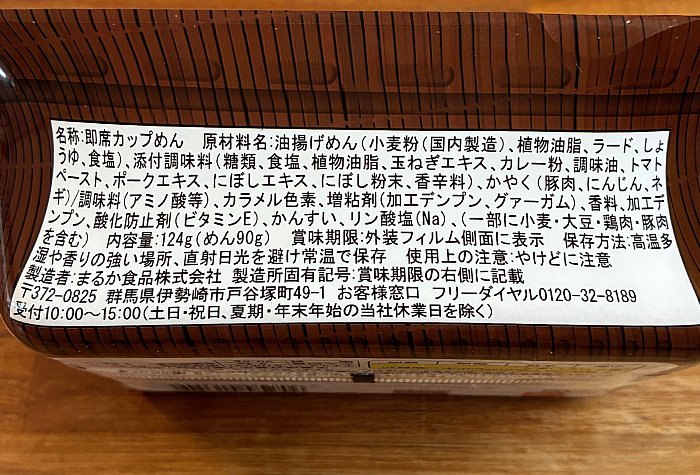 名称:即席カップめん 原材料名:油揚げめん(小麦粉(国内製造)、植物油脂、ラード、しょ
うゆ、食塩)、添付調味料(糖類、食塩、植物油脂、玉ねぎエキス、カレー粉、調味油、トマト
ペースト、ポークエキス、にぼしエキス、にぼし粉末、香辛料)、かやく(豚肉、にんじん、ネ
ギ)/調味料(アミノ酸等)、カラメル色素、増粘剤(加工デンプン、グァーガム)、香料、加工デ
ンプン、酸化防止剤(ビタミンE)、かんすい、リン酸塩(Na)、(一部に小麦・大豆・鶏肉・豚肉
を含む) 内容量:124g(めん90g) 賞味期限:外装フィルム側面に表示 保存方法:高温多
湿や香りの強い場所、直射日光を避け常温で保存 使用上の注意:やけどに注意
製造者:まるか食品株式会社 製造所固有記号:賞味期限の右側に記載
〒372-0825 群馬県伊勢崎市戸谷塚町49-1 お客様窓口 フリーダイヤル0120-32-8189
受付10:00～15:00(土日・祝日、夏期・年末年始の当社休業日を除く)